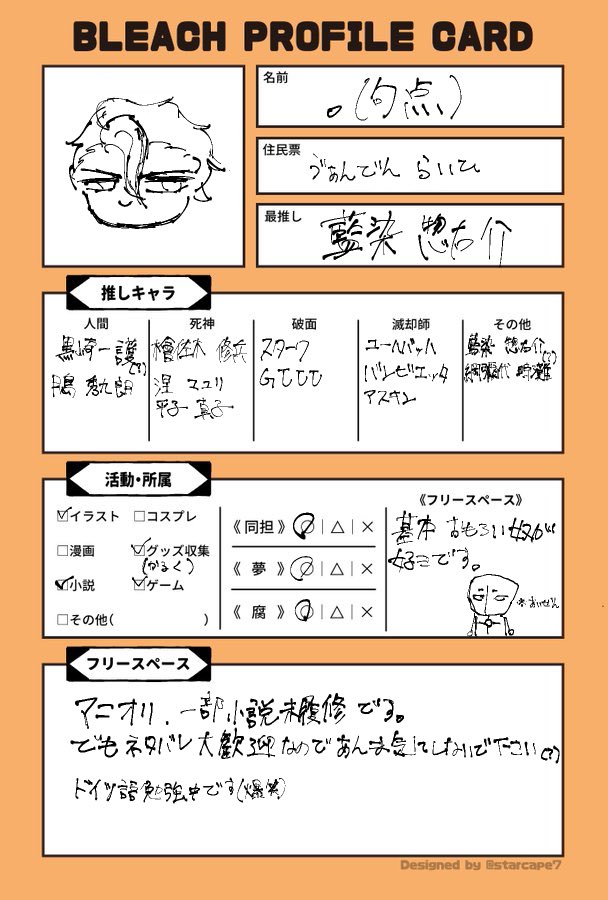 BLEACH PROFILE CARD
名前
。(句点)
住民票
ゔぁんでん らいひ
最推し
藍染 惣右介
推しキャラ
人間
黒崎一護(?)
月島 秀九郎
死神
檜佐木 修兵
涅 マユリ
平子 真子
破面
スターク
GJJJ
滅却師
ユーハバッハ
バンビエッタ
アスキン
その他
藍染 惣右介(?)
綱彌代 時灘
活動・所属
☑イラスト □コスプレ
□漫画 ☑グッズ収集
(かるく)
☑小説 ☑ゲーム
□その他( )
《同担》 ○|△|×
《 夢 》 ○|△|×
《 腐 》 ○|△|×
《フリースペース》
基本 おもろい奴が
好きです。
フリースペース
アニオリ、一部小説未履修です。
でもネタバレ大歓迎なのであんま気にしないで下さい(?)
ドイツ語勉強中です(爆笑)
Designed by @starcape7